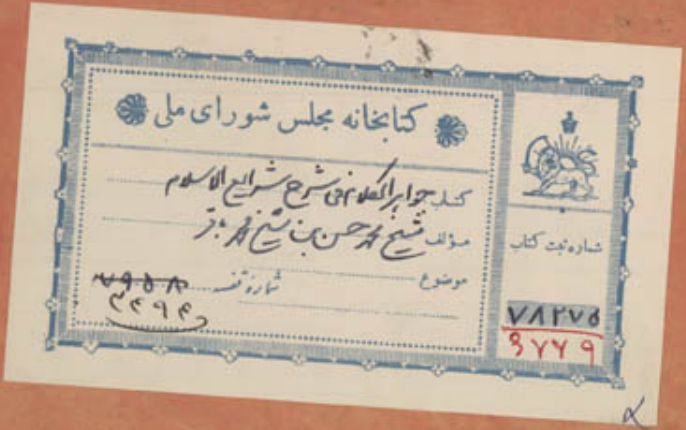 کتابخانه مجلس شورای ملی
کتاب جواهر الکلام فی شرح شرایع الاسلام
مؤلف شیخ محمد حسن بن شیخ محمد باقر
موضوع
شماره قفسه
۷۹۵۸
۳۴۹۴
شماره ثبت کتاب
۷۸۲۷۵
۹۷۷۹